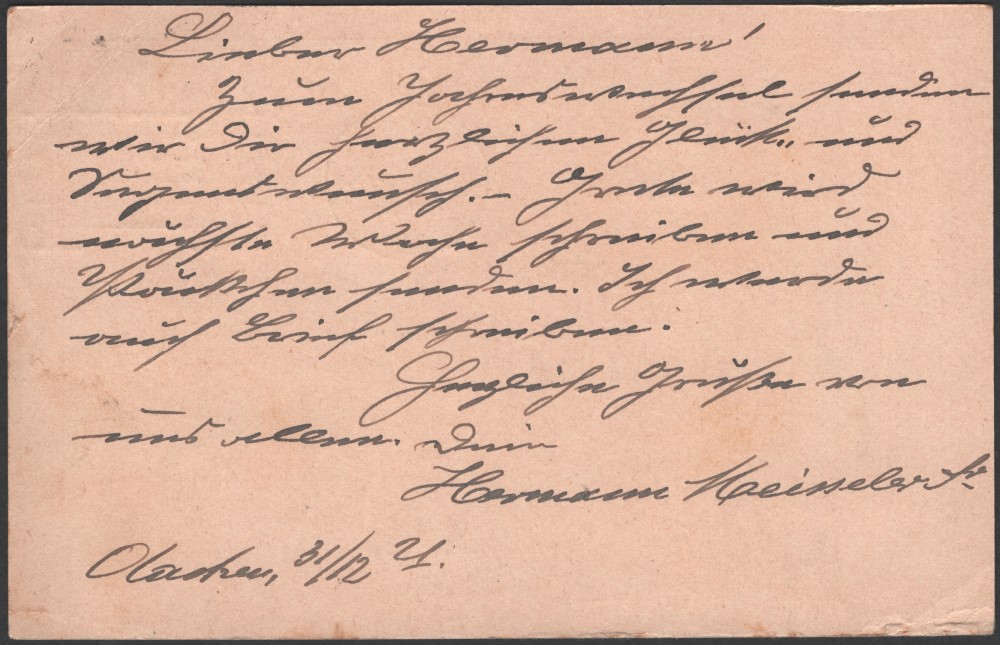 Lieber Hermann!
Zum Jahreswechsel senden
wir Dir herzlichen Glück- und
Segenswunsch. – Grete wird
nächste Woche schreiben und
Päckchen senden. Ich werde
auch Brief schreiben.
Herzliche Grüße von
uns allen. Dein
Hermann Meisseler Sr
Aachen, 31/12 21.